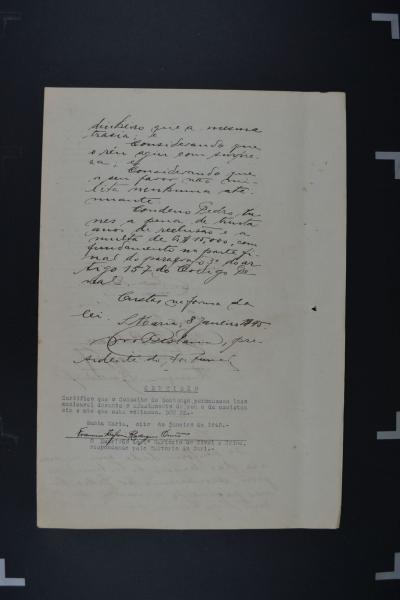 dinheiro que a mesma
trazia; e
Considerando que
o réu agiu com surpre-
sa; e
Considerando que
a seu favor não mi-
lita nenhuma ate-
nuante
Condeno Pedro
nes a pena de trinta
anos de reclusão e a
multa de 15,000, com
fundamento na parte fi-
nal do paragrafo 3º do ar-
tigo 157 do Codigo Pe-
nal.
Custas na forma da
lei.
S. Maria, 8 Janeiro 1945
pre-
sidente do Tribunal
CERTIDÃO
Certifico que o Conselho de Sentença permaneceu
durante o afastamento do reu e da assisten-
cia e até que esta voltasse. DOU FÉ.-
Santa Maria, oito de Janeiro de 1945.-
O Cartorio do Civel e Crime,
respondendo pelo Cartorio do Juri.-